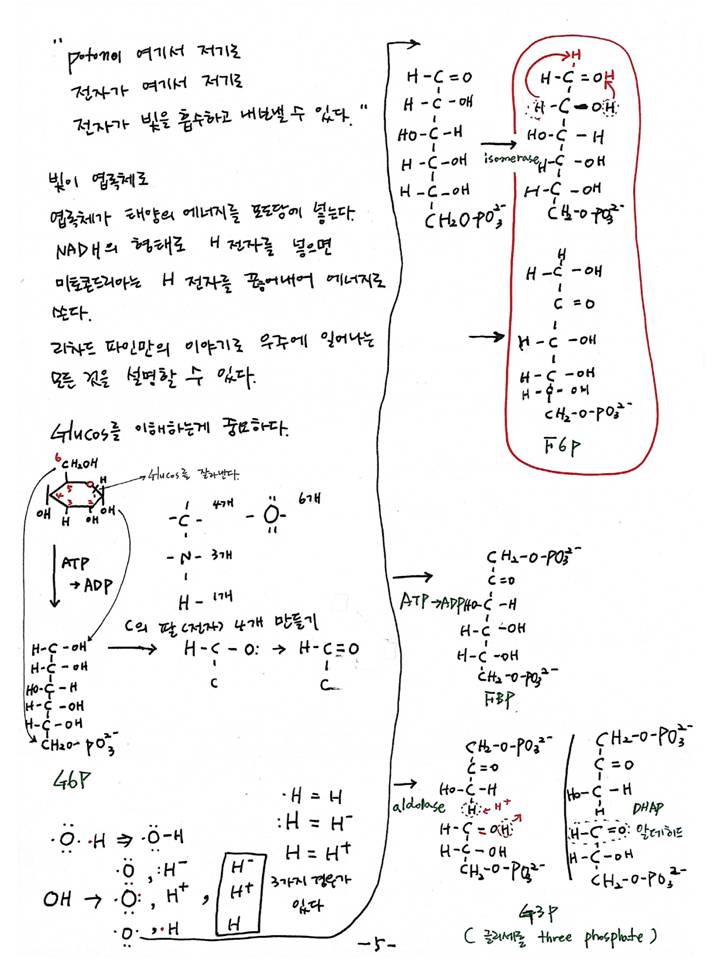 "poton이 여기서 저기로
전자가 여기서 저기로
전자가 빛을 흡수하고 내보낼 수 있다."
빛이 엽록체로
엽록체가 태양의 에너지를 포도당에 넣는다.
NADH의 형태로 H 전자를 넣으면
미토콘드리아는 H 전자를 뜯어내어 에너지로
쓴다.
리차드 파인만의 이야기로 우주에 일어나는
모든 것을 설명할 수 있다.
Glucos를 이해하는게 중요하다.
6
CH2OH
Glucos를 잘라낸다.
5 O H
4 1
3 2
OH H OH OH
ATP
→ ADP
-C- 4개
-O- 6개
-N- 3개
H- 1개
C의 팔(전자) 4개 만들기
H-C-OH
H-C-OH
HO-C-H
H-C-OH
H-C-OH
CH2O-PO3 2-
G6P
→ H-C-O: → H-C=O
C C
·O· ·H ⇒ ·O-H
OH → ·O, :H-
·O:, H+,
·O·, ·H
H-
H+
H
·H = H
:H = H-
H = H+
3가지 경우가
있다
H-C=O
H-C-OH
HO-C-H
H-C-OH
H-C-OH
CH2O-PO3 2-
→
isomerase
H
H-C=OH
H-C-OH
HO-C-H
H-C-OH
H-C-OH
CH2-O-PO3 2-
→
H
H-C-OH
C=O
H-C-OH
H-C-OH
H-C-OH
CH2-O-PO3 2-
F6P
→
ATP→ADP
CH2-O-PO3 2-
C=O
HO-C-H
H-C-OH
H-C-OH
CH2-O-PO3 2-
FBP
→
aldolase
CH2-O-PO3 2-
C=O
HO-C-H
H ← H+
H-C=OH
H-C-OH
CH2-O-PO3 2-
CH2-O-PO3 2-
C=O
HO-C-H
H
DHAP
H-C=O 알데히드
H-C-OH
CH2-O-PO3 2-
G3P
(글리세롤 three phosphate)
-5-